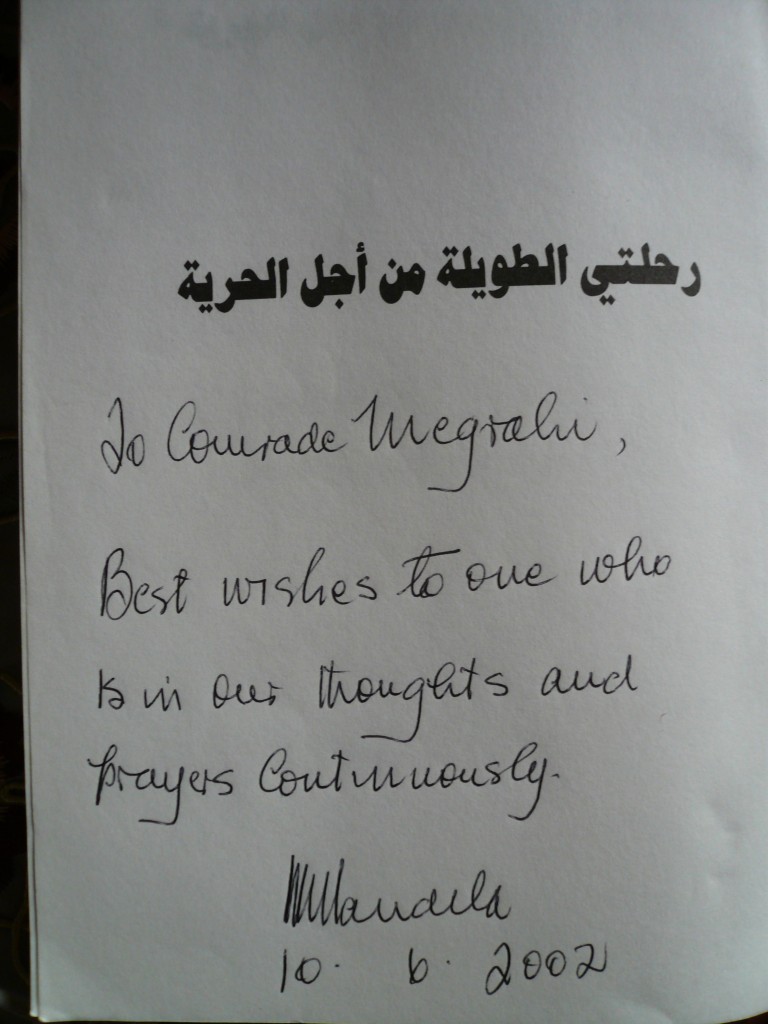 رحلتي الطويلة من أجل الحرية
To Comrade Megrahi,
Best wishes to one who
is in our thoughts and
prayers continuously.
NMandela
10. 6. 2002